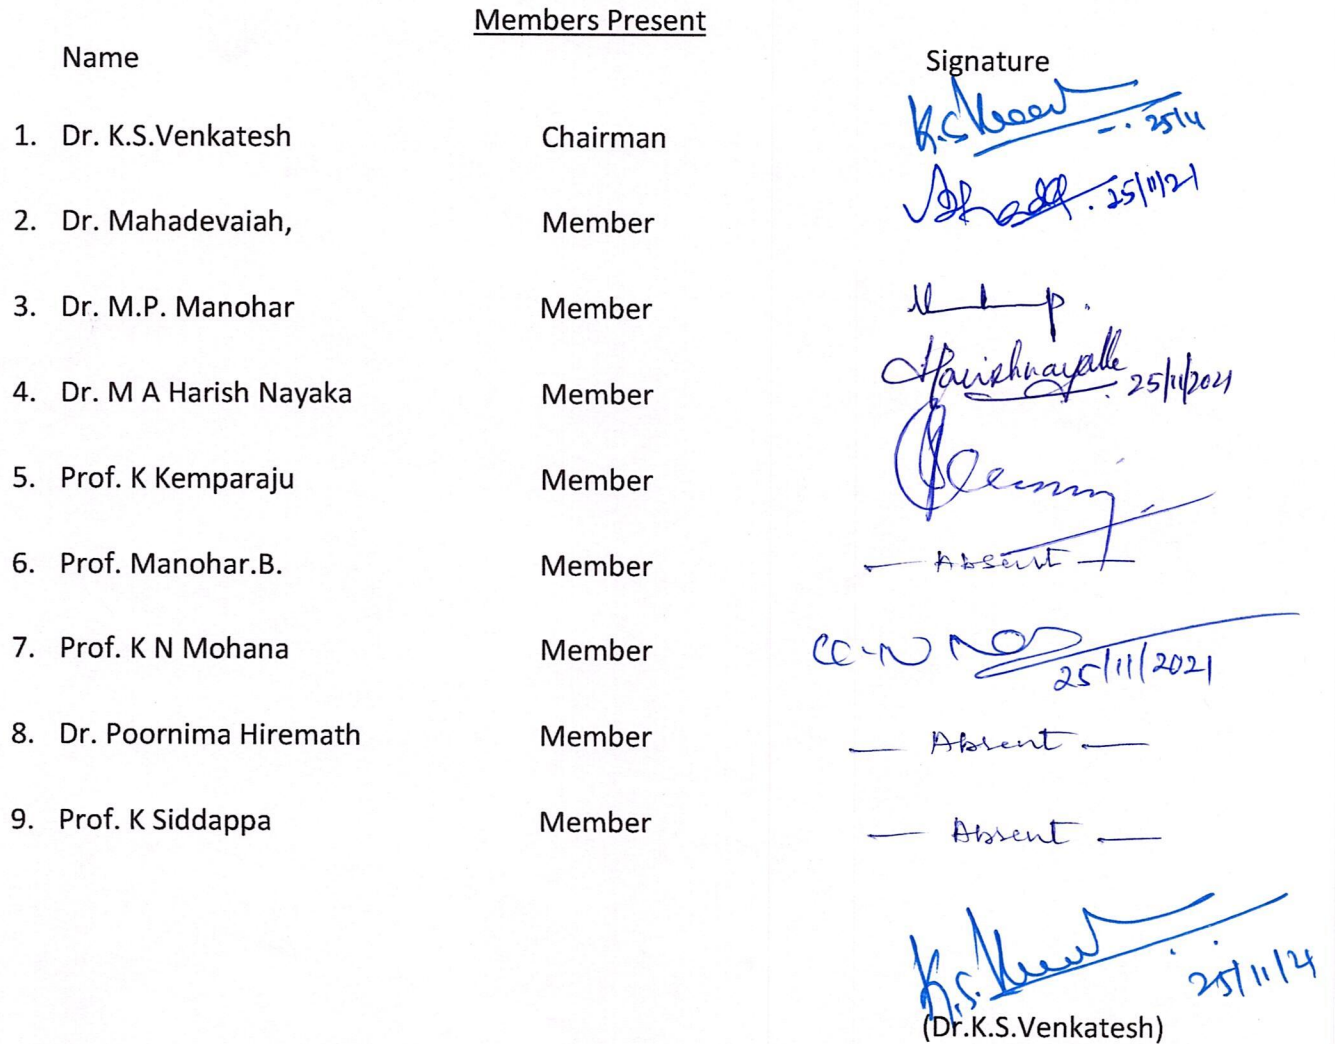 Members Present
Name Signature
1. Dr. K.S.Venkatesh Chairman 25/11
2. Dr. Mahadevaiah, Member 25/11/21
3. Dr. M.P. Manohar Member
4. Dr. M A Harish Nayaka Member Harishnayaka 25/11/2021
5. Prof. K Kemparaju Member
6. Prof. Manohar.B. Member — Absent —
7. Prof. K N Mohana Member 25/11/2021
8. Dr. Poornima Hiremath Member — Absent —
9. Prof. K Siddappa Member — Absent —
K.S. 25/11/21
(Dr.K.S.Venkatesh)